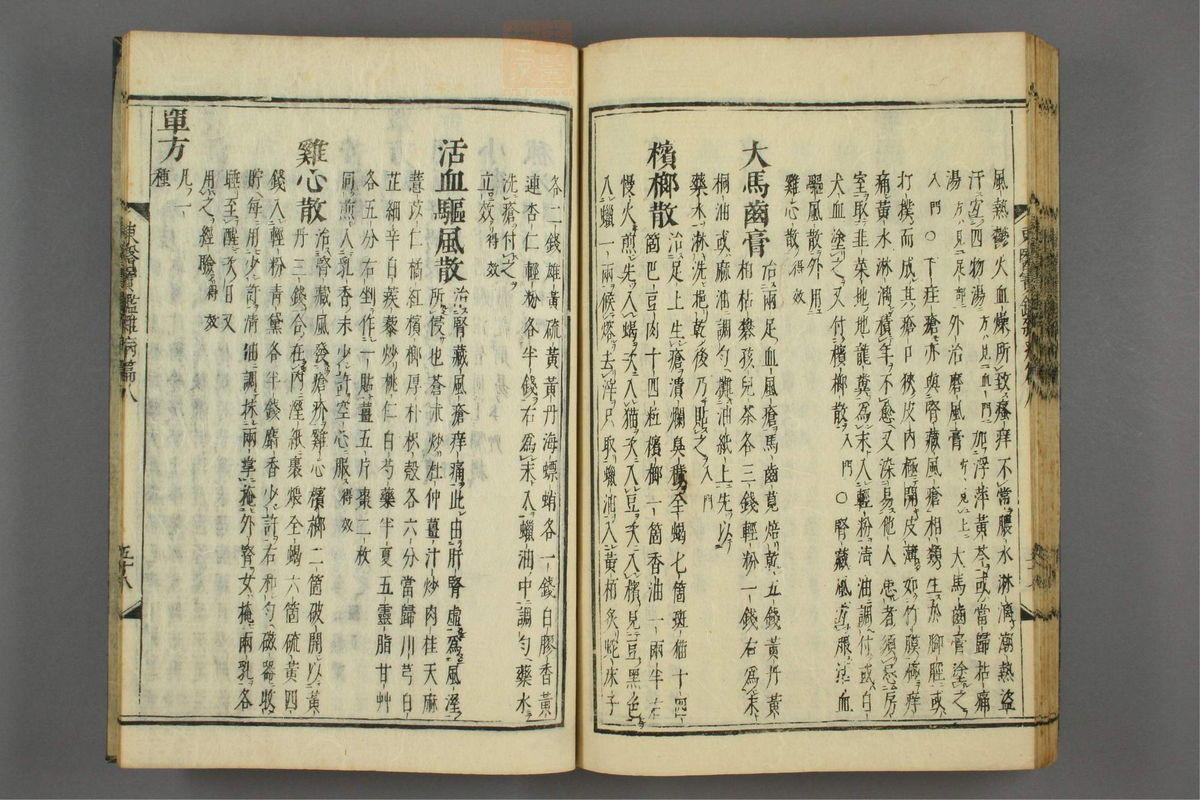 風熱鬱火血燥所致瘙痒不常膿水淋漓潮熱盜
汗宜四物湯方見血門加浮萍黃芩或當歸拈痛
湯方見足部外治磨風膏方見上大馬齒膏塗之
入門○下疰瘡亦與腎藏風瘡相類生於脚脛或
打撲而成其瘡口狹皮內極開皮薄如竹膜極痒
痛黃水淋漓積年不愈又深易他人患者須忌房
室取韭菜地地龍糞爲末入輕粉淸油調付或白
犬血塗之又付檳榔散入門○腎藏風宜服活血
驅風散外用
雞心散得效
大馬齒膏 治兩足血風瘡馬齒莧焙乾五錢黃丹黃
栢枯礬孩兒茶各三錢輕粉一錢右爲末
桐油或麻油調勻攤油紙上先以
藥水淋洗挹乾後乃貼之入門
檳榔散 治足上生瘡潰爛臭穢全蝎七箇斑猫十四
箇巴豆肉十四粒檳榔一箇香油一兩半右
慢火煎先入蝎次入猫次入豆次入檳見豆黑色
入蠟一兩候熔去滓只取蠟油入黃栢炙蛇床子
各二錢雄黃硫黃黃丹海螵蛸各一錢白膠香黃
連杏仁輕粉各半錢右爲末入蠟油中調勻藥水
洗瘡付之
立效得效
活血驅風散 治腎藏風瘡痒痛此由肝腎虛爲風溼
所侵也蒼朮炒杜仲薑汁炒肉桂天麻
薏苡仁橘紅檳榔厚朴枳殼各六分當歸川芎白
芷細辛白蒺藜炒桃仁白芍藥半夏五靈脂甘艸
各五分右剉作一貼薑五片棗二枚
同煎入乳香末少許空心服得效
雞心散 治腎藏風發瘡疥雞心檳榔二箇破開以黃
丹三錢合在內溼紙裹煨全蝎六箇硫黃四
錢入輕粉靑黛各半錢麝香少許右和勻磁器收
貯每用少許淸油調抹兩掌掩外腎女掩兩乳各
睡至醒次日又
用之經驗得效
單方 凡一
種
東醫寶鑑雜病篇八
五十八